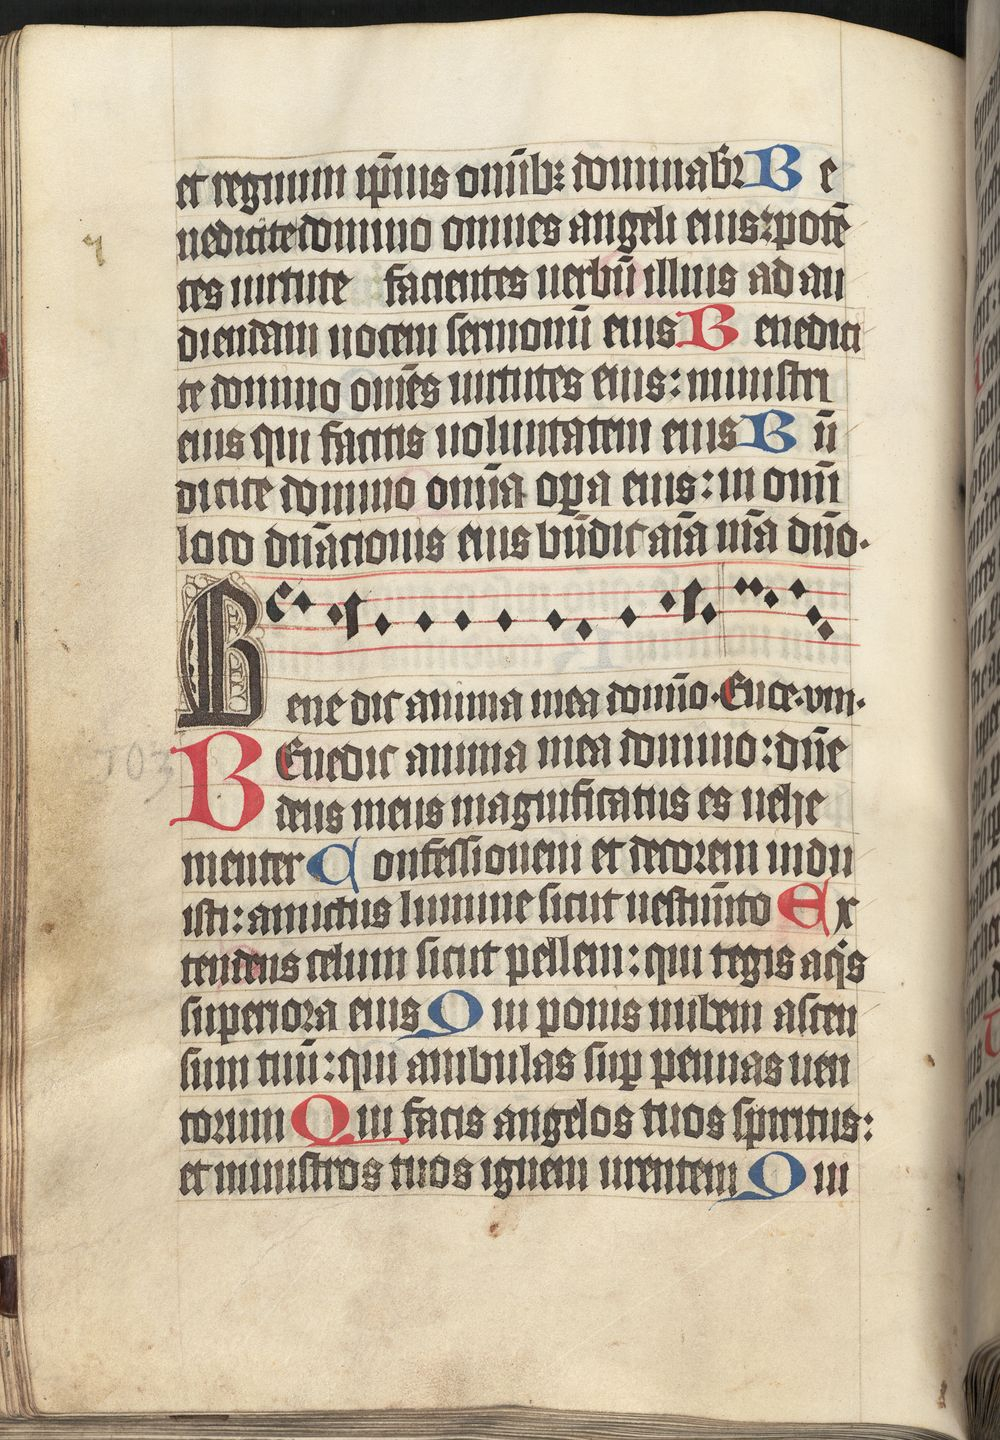 et regnum ip̄ius om̄ibꝫ dominabr̄ B e
nedicite domino omnes angeli eius: potē
tes uirtute facientes uerbū illius ad au
diendam uocem sermonū eius B enedici
te domino om̄es uirtutes eius: ministri
eius qui facitis uoluntatem eius B n̄
dicite domino om̄ia oꝑa eius: in om̄i
loco dn̄acionis eius bn̄dic aīa m̄a dn̄o.
Bene dic anima mea domīo. Euce. vm.
BEnedic anima mea domino: dn̄e
deus meus magnificatus es uehe
menter C onfessionem et decorem indu
isti: amictus lumine sicut uestim̄to Ex
tendens celum sicut pellem: qui tegis aq̄s
superiora eius Q ui ponis nubem ascen
sum tuū: qui ambulas suꝑ pennas uen
torum Qui facis angelos tuos spiritus:
et ministros tuos ignem urentem Q ui
103